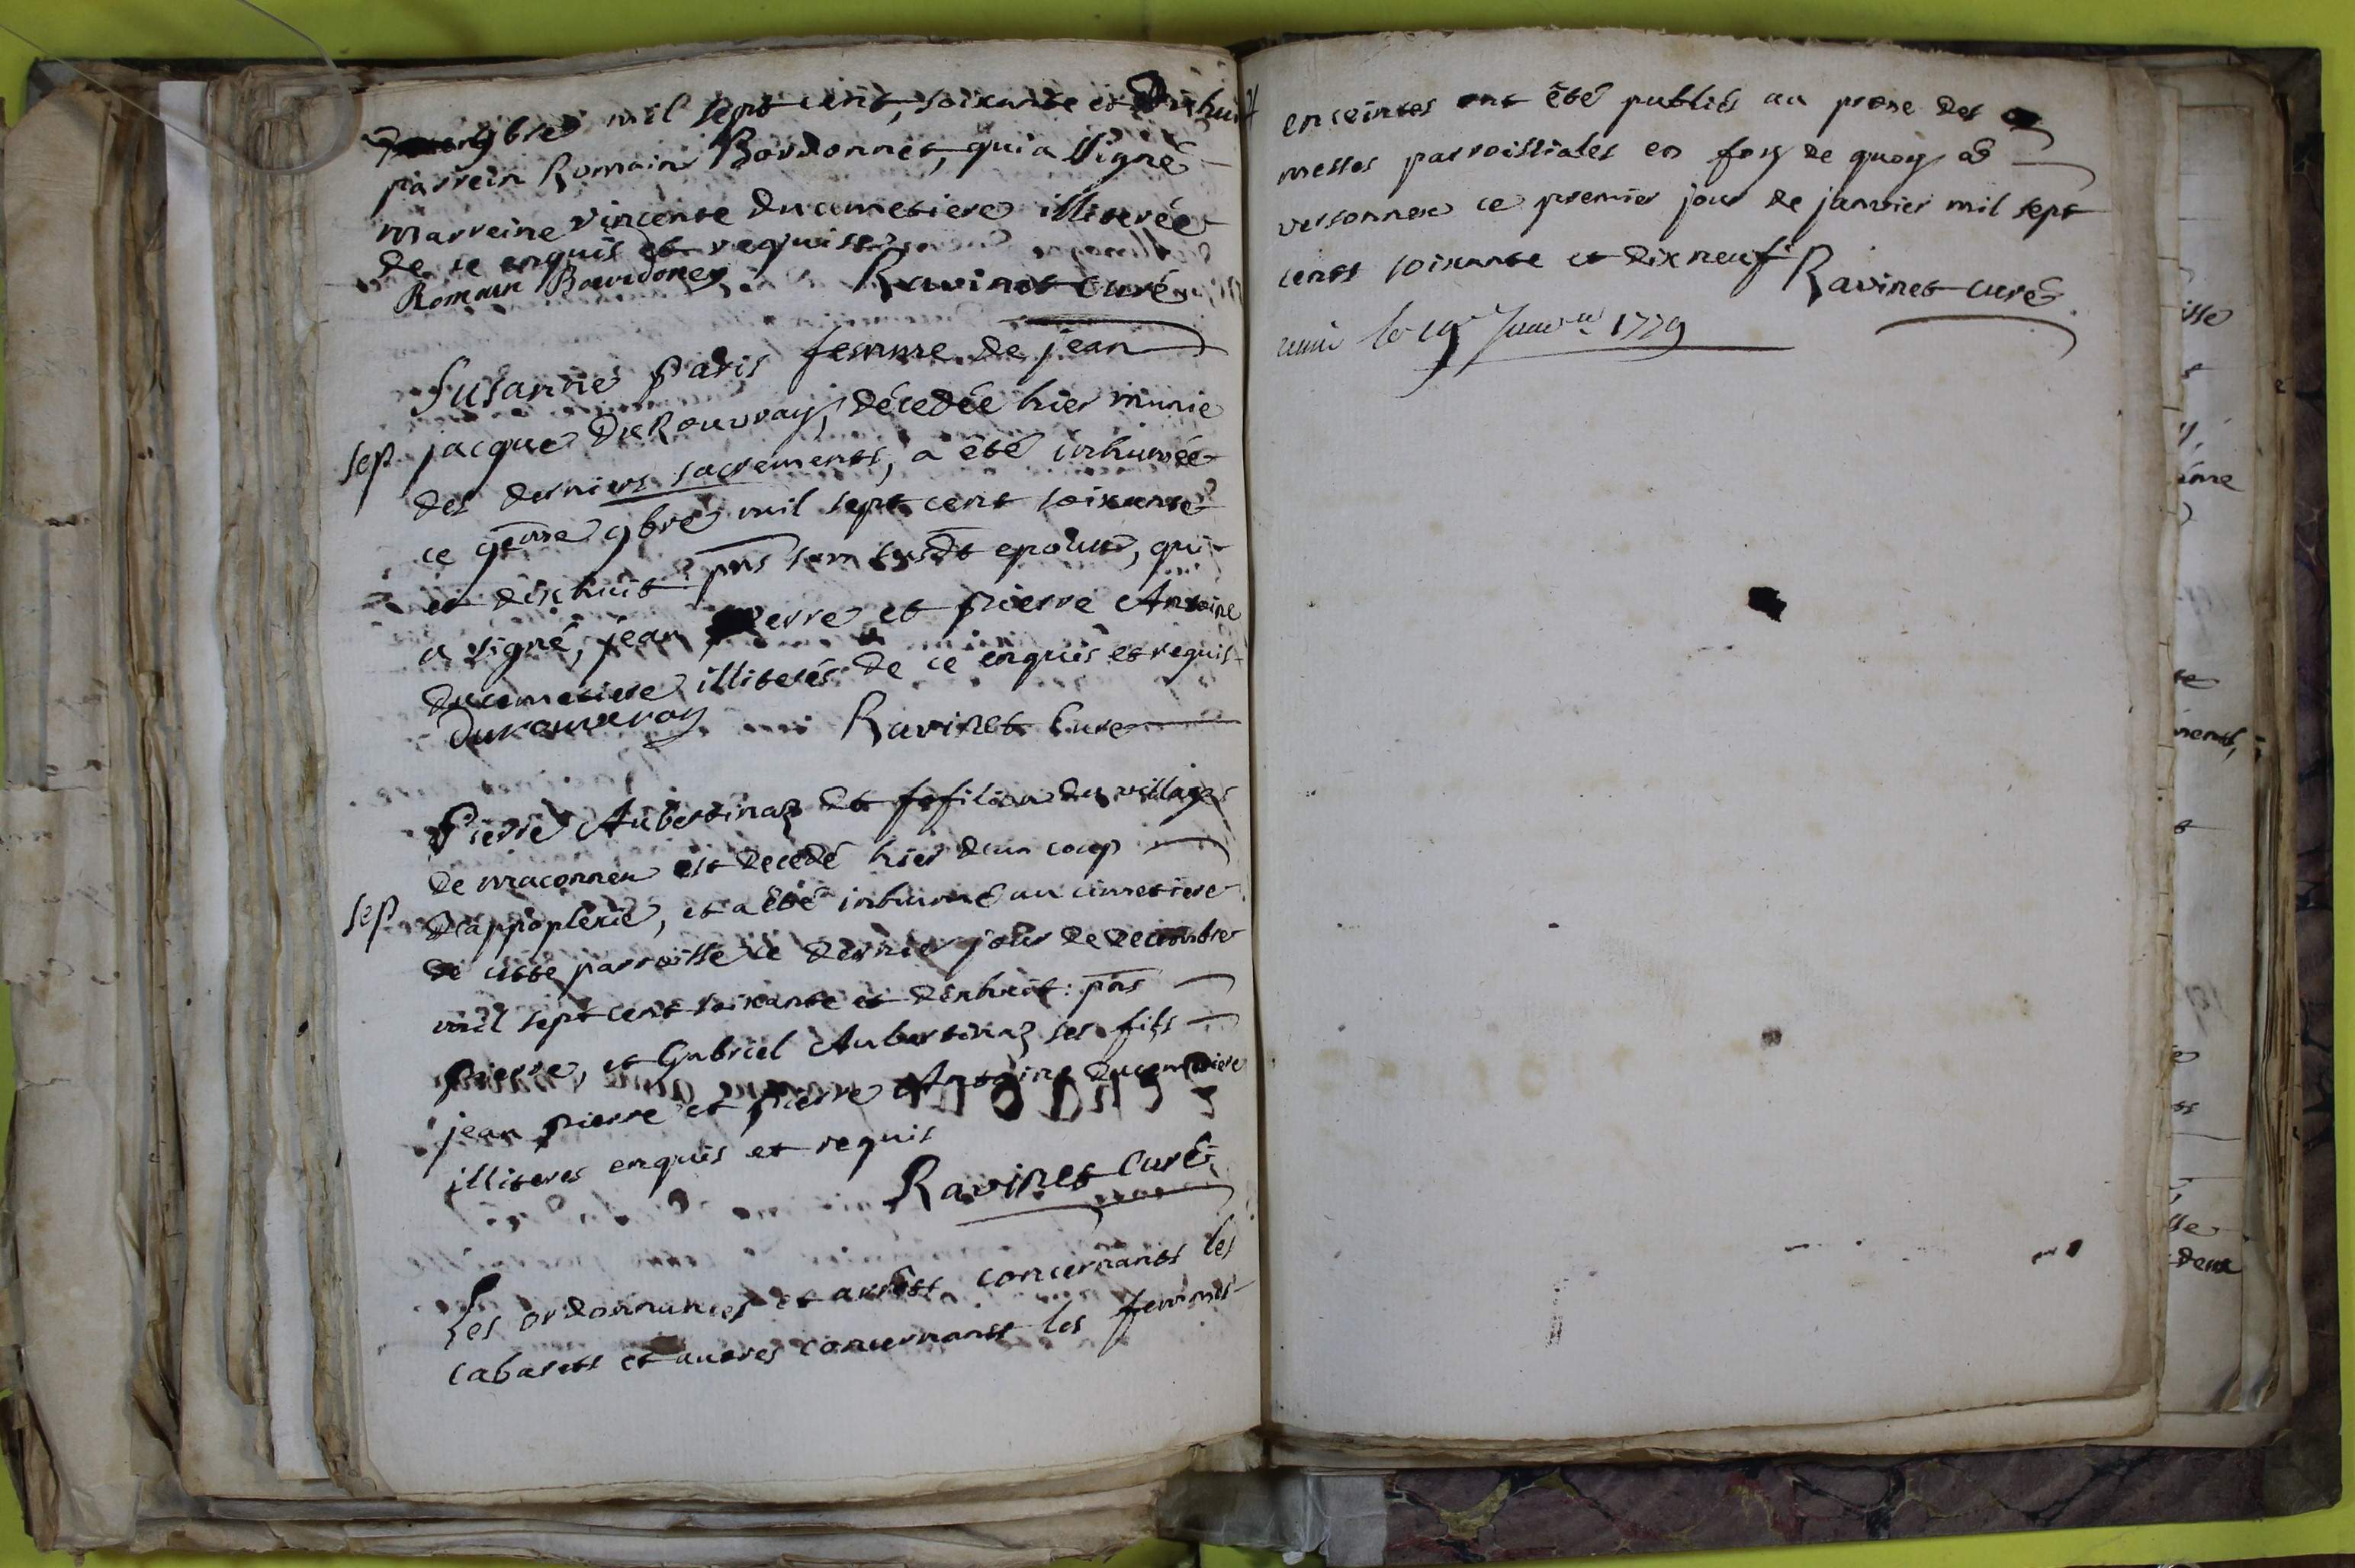 9bre mil sept cent, soixante et dixhuit
parrein Romain Bordonnet, qui a signé
marreine vincente Ducimetiere illiterée
de ce enquis et requise
Romain Bourdoney Ravinet curé
Susanne Paris femme de jean
sep. jacque DuRouvray, décedée hier munie
des derniers sacrements, a été inhumée
ce 9eme 9bre mil sept cent soixante
et dixhuit pns son susdt epoux, qui
a signé, jean pierre et pierre Antoine
ducimetiere illiterés de ce enquis et requis
Durouveray Ravinet Curé
Pierre Aubertinaz dt du village
de maconnen est decedé hier d'un coup
sep d'appoplexie, et a été inhumé au cimetiere
de cette parroisse ce dernier jour de decembre
mil sept cent soixante et dixhuit: pns
pierre, et Gabriel Aubertinaz ses fils
jean pierre et pierre Antoine Ducimetiere
illiteres enquis et requis
Ravinet Curé
Les ordonnances et arrêst concernants les
cabarets et autres concernants les femmes
enceintes ont été publiés au prone des
messes parroissiales en foy de quoy à
versonnex ce premier jour de janvier mil sept
cents soixante et dixneuf Ravinet curé
le 19e 1779